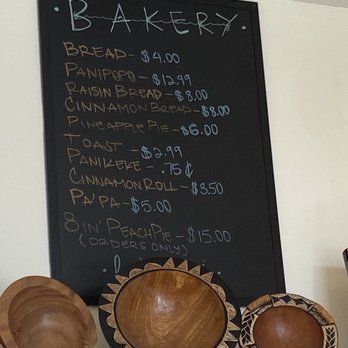 BAKERY
BREAD - $4.00
PANIPOPO - $12.99
RAISIN BREAD - $8.00
CINNAMON BREAD - $8.00
PINEAPPLE PIE - $6.00
TOAST - $2.99
PANIKEKE - .75¢
CINNAMON ROLL - $3.50
PA'PA - $5.00
8IN' PEACH PIE - $15.00
(ORDERS ONLY)